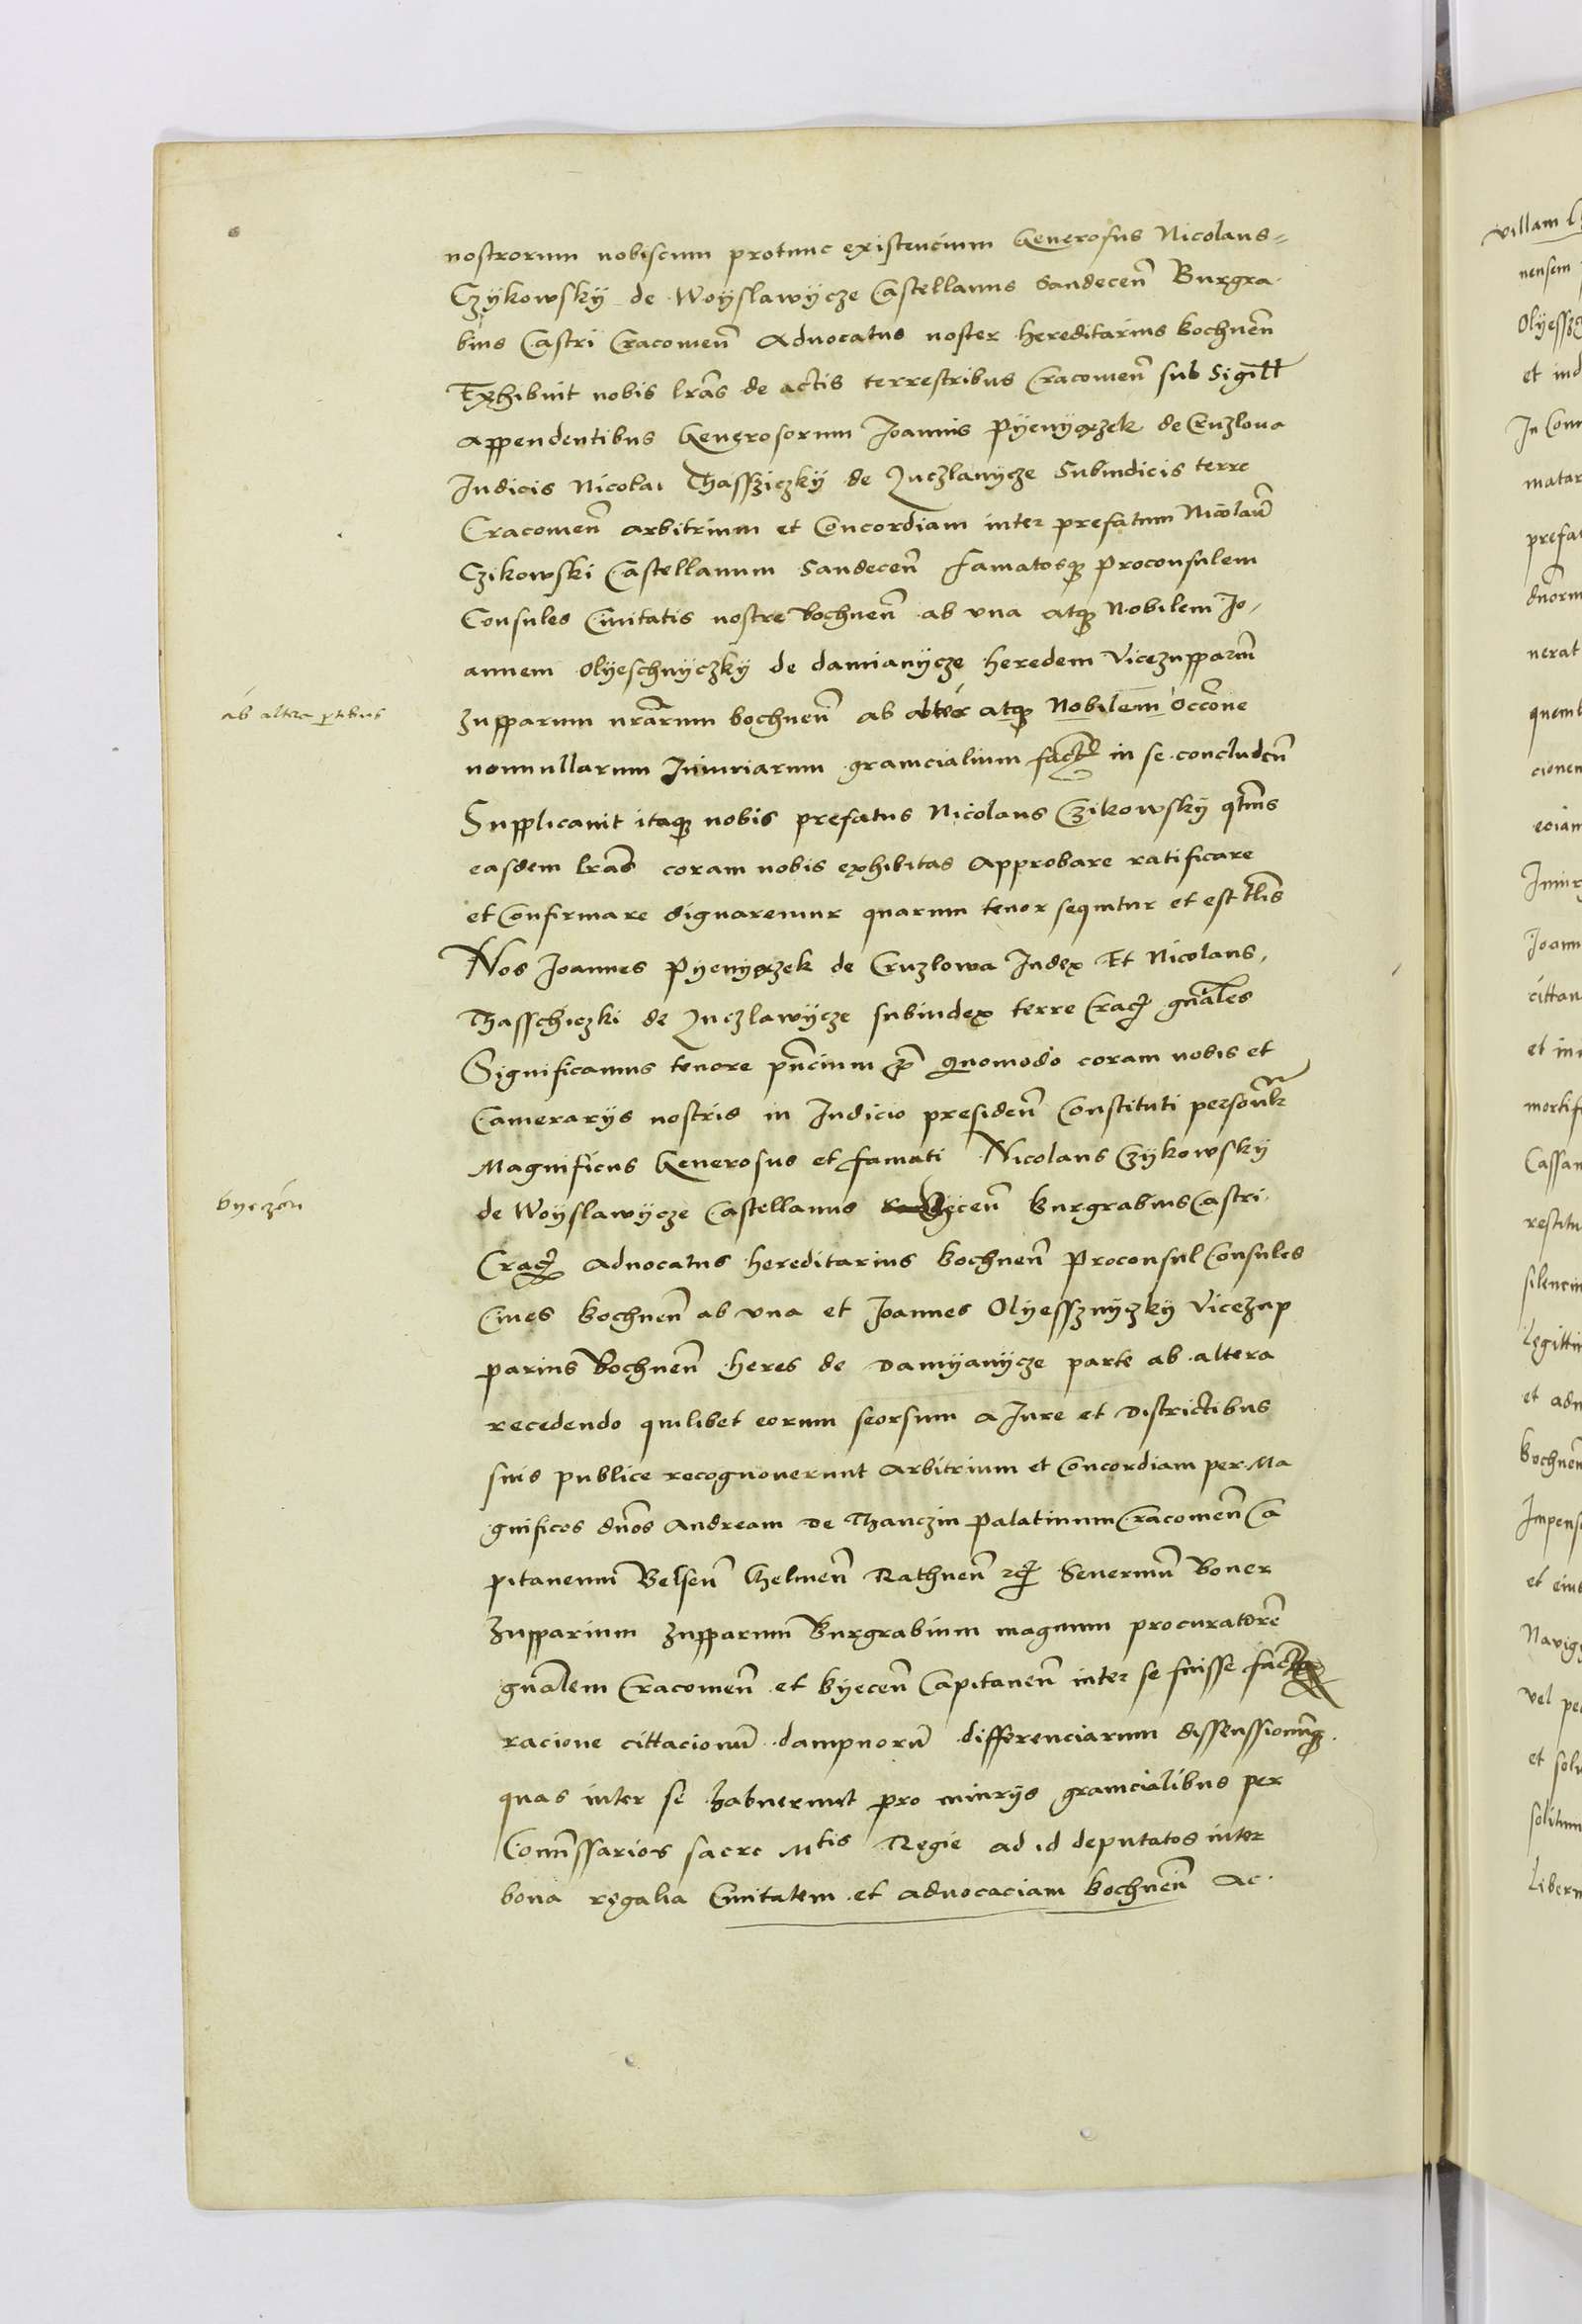 nostrorum nobiscum protunc existencium Generosus Nicolaus
Czÿkowskÿ de Woÿslawÿcze Castellanus Sandeceñ Burgra
bius Castri Cracovieñ Advocatus noster hereditarius bochneñ
Exhibuit nobis l̃ras de actis terrestribus Cracovieñ sub Sigill
appendentibus Generosorum Joannis Pÿenÿązek de Cruzlova
Judicis Nicolai Thassziczkÿ de Luczlavycze Subiudicis terre
Cracovieñ arbitrium et Concordiam inter prefatum Nicolaũ
Czikowski Castellanum Sandeceñ famatosq Proconsulem
Consules Civitatis nostre Bochneñ ab vna atq Nobilem Jo
annem Olÿeschnÿczkÿ de damianÿcze heredem Vicezupparm̃
ab altera ptibus
zupparum nr̃arum bochneñ ab alter atq Nobilem Occõne
nonnullarum Iniuriarum graniicialium fact in se concludeñ
Supplicavit itaq nobis prefatus Nicolaus Czikowskÿ qtm̃s
easdem l̃ras coram nobis exhibitas Approbare ratificare
et Confirmare dignaremur quarum tenor sequitur et est tl̃is
Nos Joannes Pÿenÿązek de Cruzlowa Iudex Et Nicolaus
Thasschiczki de Luczlawÿcze subiudex terre Crac gñales
Significamus tenore pñcium Quomodo coram nobis et
Camerarÿs nostris in Iudicio presideñ Constituti personlr
Magnificus Generosus et famati Nicolaus Czÿkowskÿ
byeczeń
de Woÿslawÿcze Castellanus burgrabius Castri
Crac Advocatus hereditarius bochneñ Proconsul Consules
Cives bochneñ ab vna et Joannes Olÿessznÿczkÿ Vicezup
parius Bochneñ heres de Damÿanÿcze parte ab altera
recedendo quilibet eorum seorsum a Jure et Districtibus
suis publice recognoverunt Arbitrium et Concordiam per Ma
gnificos dños Andream de Thanczin Palatinum Cracovieñ Ca
pitaneum Belseñ Chelmeñ Rathneñ Severinũ Boner
zupparium zupparum Burgrabium magnum procuratorẽ
gñalem Cracovieñ et byeceñ Capitaneũ inter se fuisse
racione cittacionũ dampnorũ differenciarum dissenssionũq
quas inter se habuerunt pro iniurÿs granicialibus per
Comĩssarios sacre Mtis Regie ad id deputatos inter
bona regalia Civitatem et advocaciam bochneñ Ac